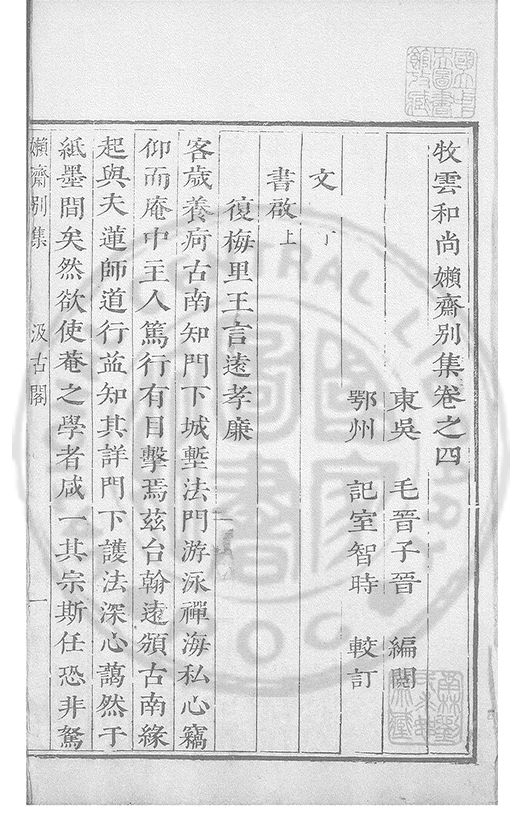 牧雲和尚嬾齋别集卷之四
東吳　毛晉子晉　編閱
鄂州　記室智時　較訂
文　丁
書啟上
復梅里王言遠孝廉
客歲養疴古南知門下城塹法門游泳禪海私心竊
仰而庵中主人篤行有目擊焉茲台翰遠頒古南緣
起與夫蓮師道行益知其詳門下護法深心藹然于
紙墨間矣然欲使菴之學者咸一其宗斯任恐非駑
嬾齋别集　汲古閣　一
CENTRAL LIBRARY